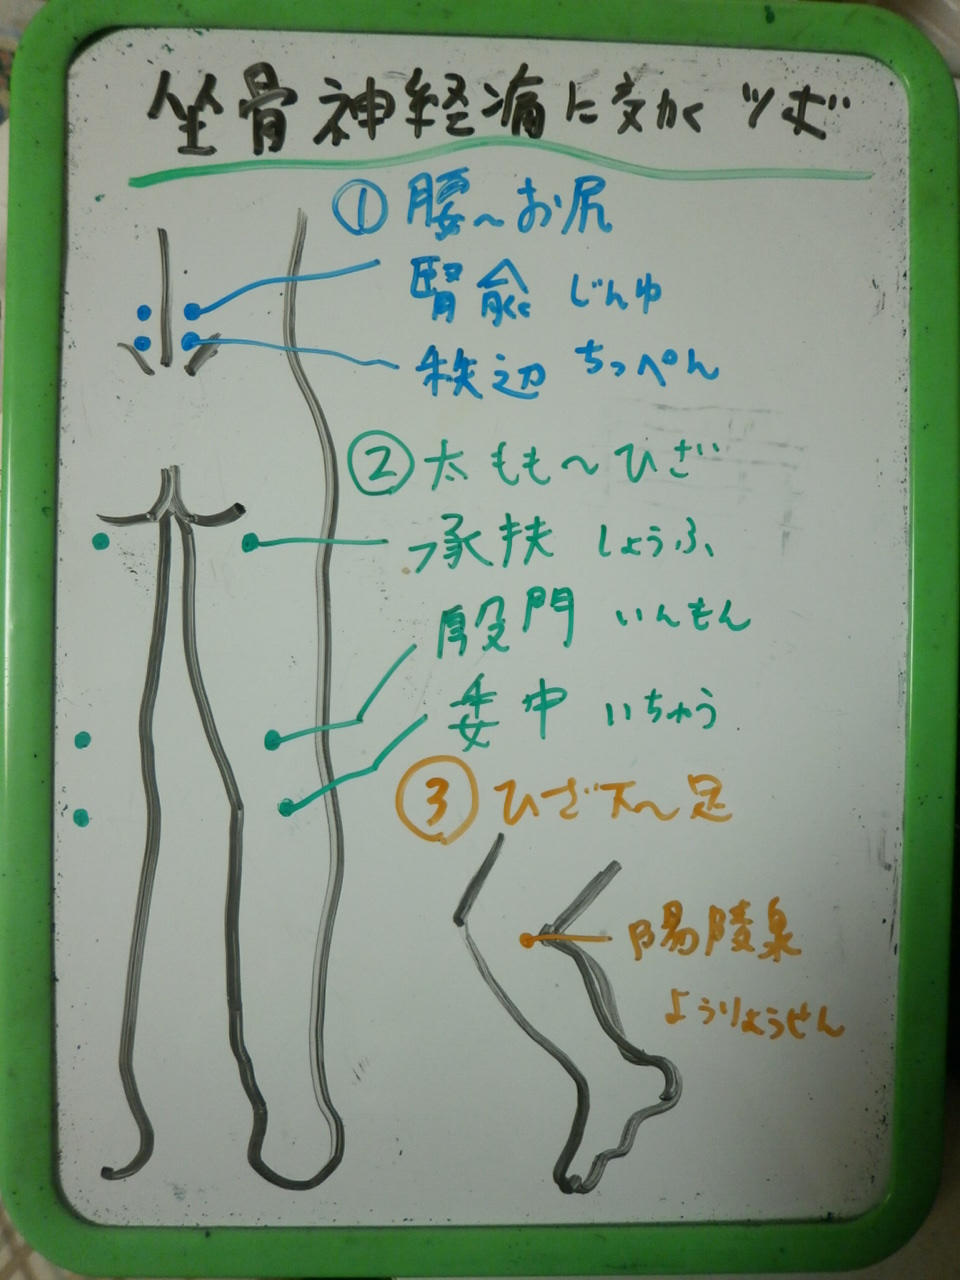 坐骨神経痛に効くツボ
① 腰〜お尻
腎兪 じんゆ
秩辺 ちっぺん
② 太もも〜ひざ
承扶 しょうふ
殷門 いんもん
委中 いちゅう
③ ひざ下〜足
陽陵泉
ようりょうせん